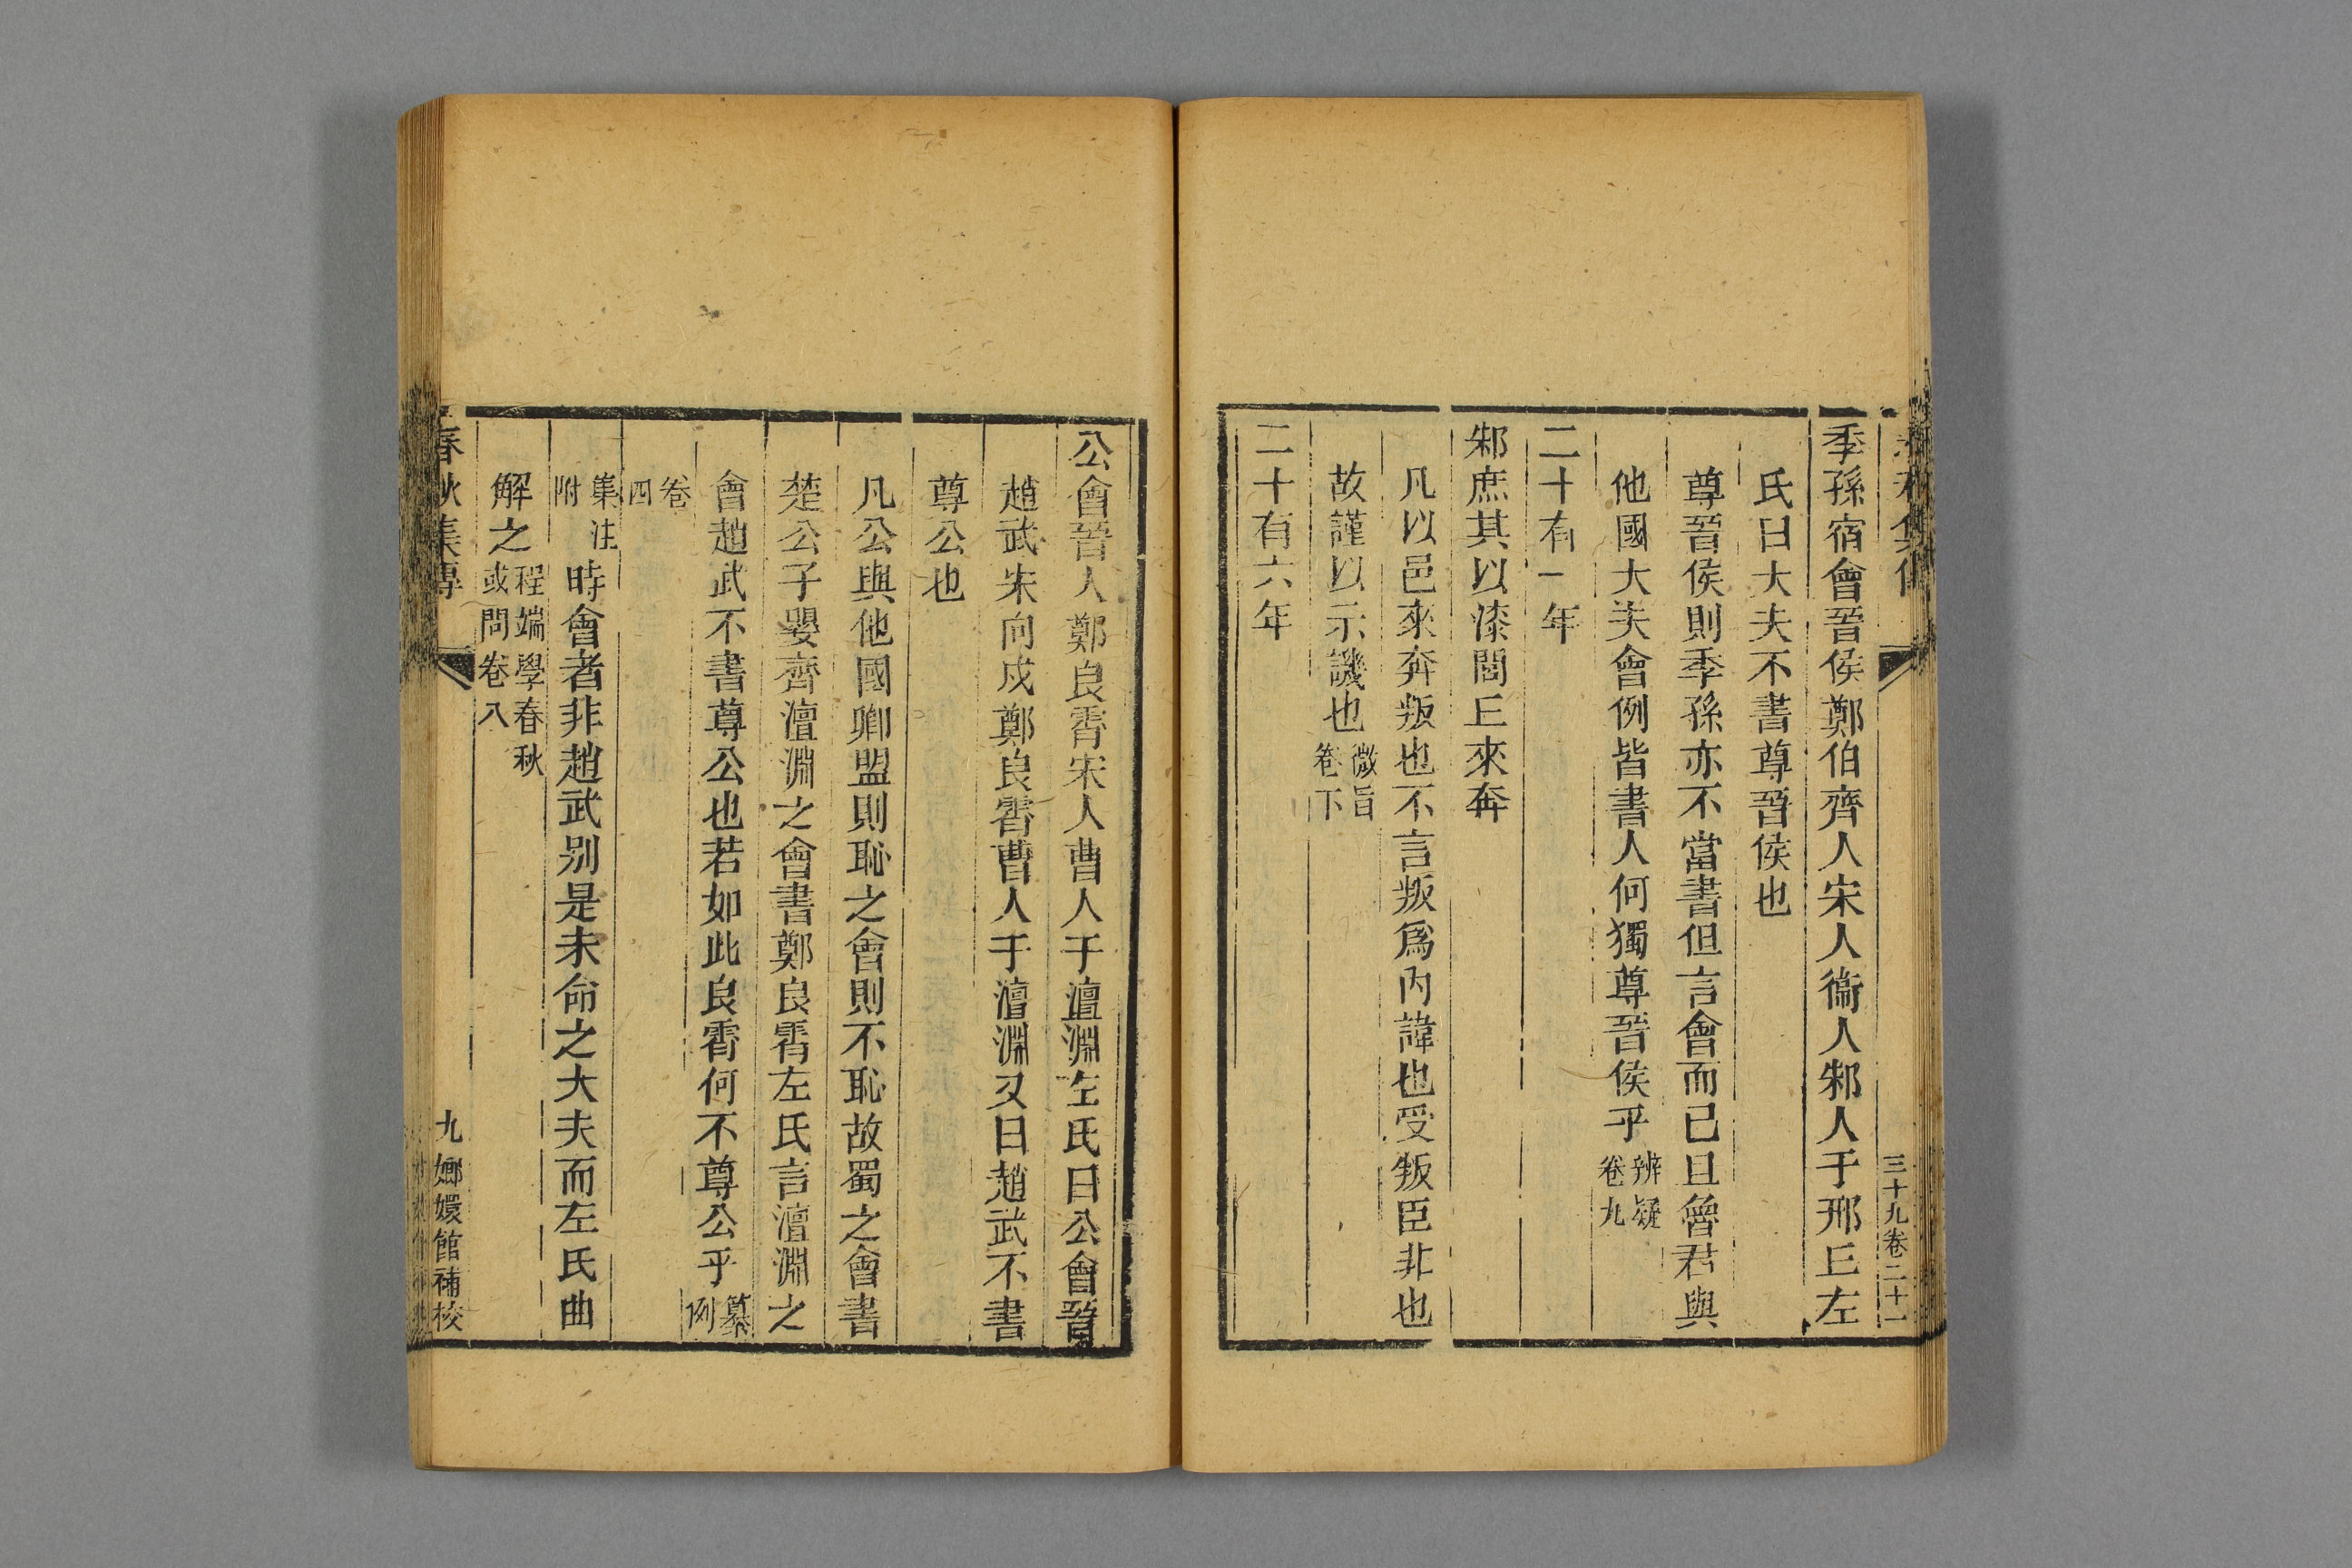 三十九卷二十一
季孫宿會晉侯鄭伯齊人宋人衞人邾人于邢丘左
氏曰大夫不書尊晉侯也
尊晉侯則季孫亦不當書但言會而已且魯君與
他國大夫會例皆書人何獨尊晉侯乎辨疑卷九
二十有一年
邾庶其以漆閭丘來奔
凡以邑來奔叛也不言叛爲內諱也受叛臣非也
故謹以示譏也微旨卷下
二十有六年
公會晉人鄭良霄宋人曹人于澶淵左氏曰公會晉
趙武宋向戌鄭良霄曹人于澶淵又曰趙武不書
尊公也
凡公與他國卿盟則恥之會則不恥故蜀之會書
楚公子嬰齊澶淵之會書鄭良霄左氏言澶淵之
會趙武不書尊公也若如此良霄何不尊公乎纂例
卷四
集注附時會者非趙武别是未命之大夫而左氏曲
解之程端學春秋或問卷八
春秋集傳 九 嫏嬛館補校